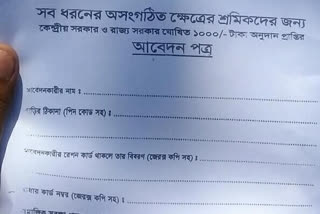 সব ধরনের অসংগঠিত ক্ষেত্রের শ্রমিকদের জন্য
কেন্দ্রীয় সরকার ও রাজ্য সরকার ঘোষিত ১০০০/- টাকা অনুদান প্রাপ্তির
আবেদন পত্র
আবেদনকারীর নাম :
বাড়ির ঠিকানা (পিন কোড সহ) :
আবেদনকারীর রেশন কার্ড থাকলে তার বিবরণ (জেরক্স কপি সহ) :
আধার কার্ড নম্বর (জেরক্স কপি সহ) :